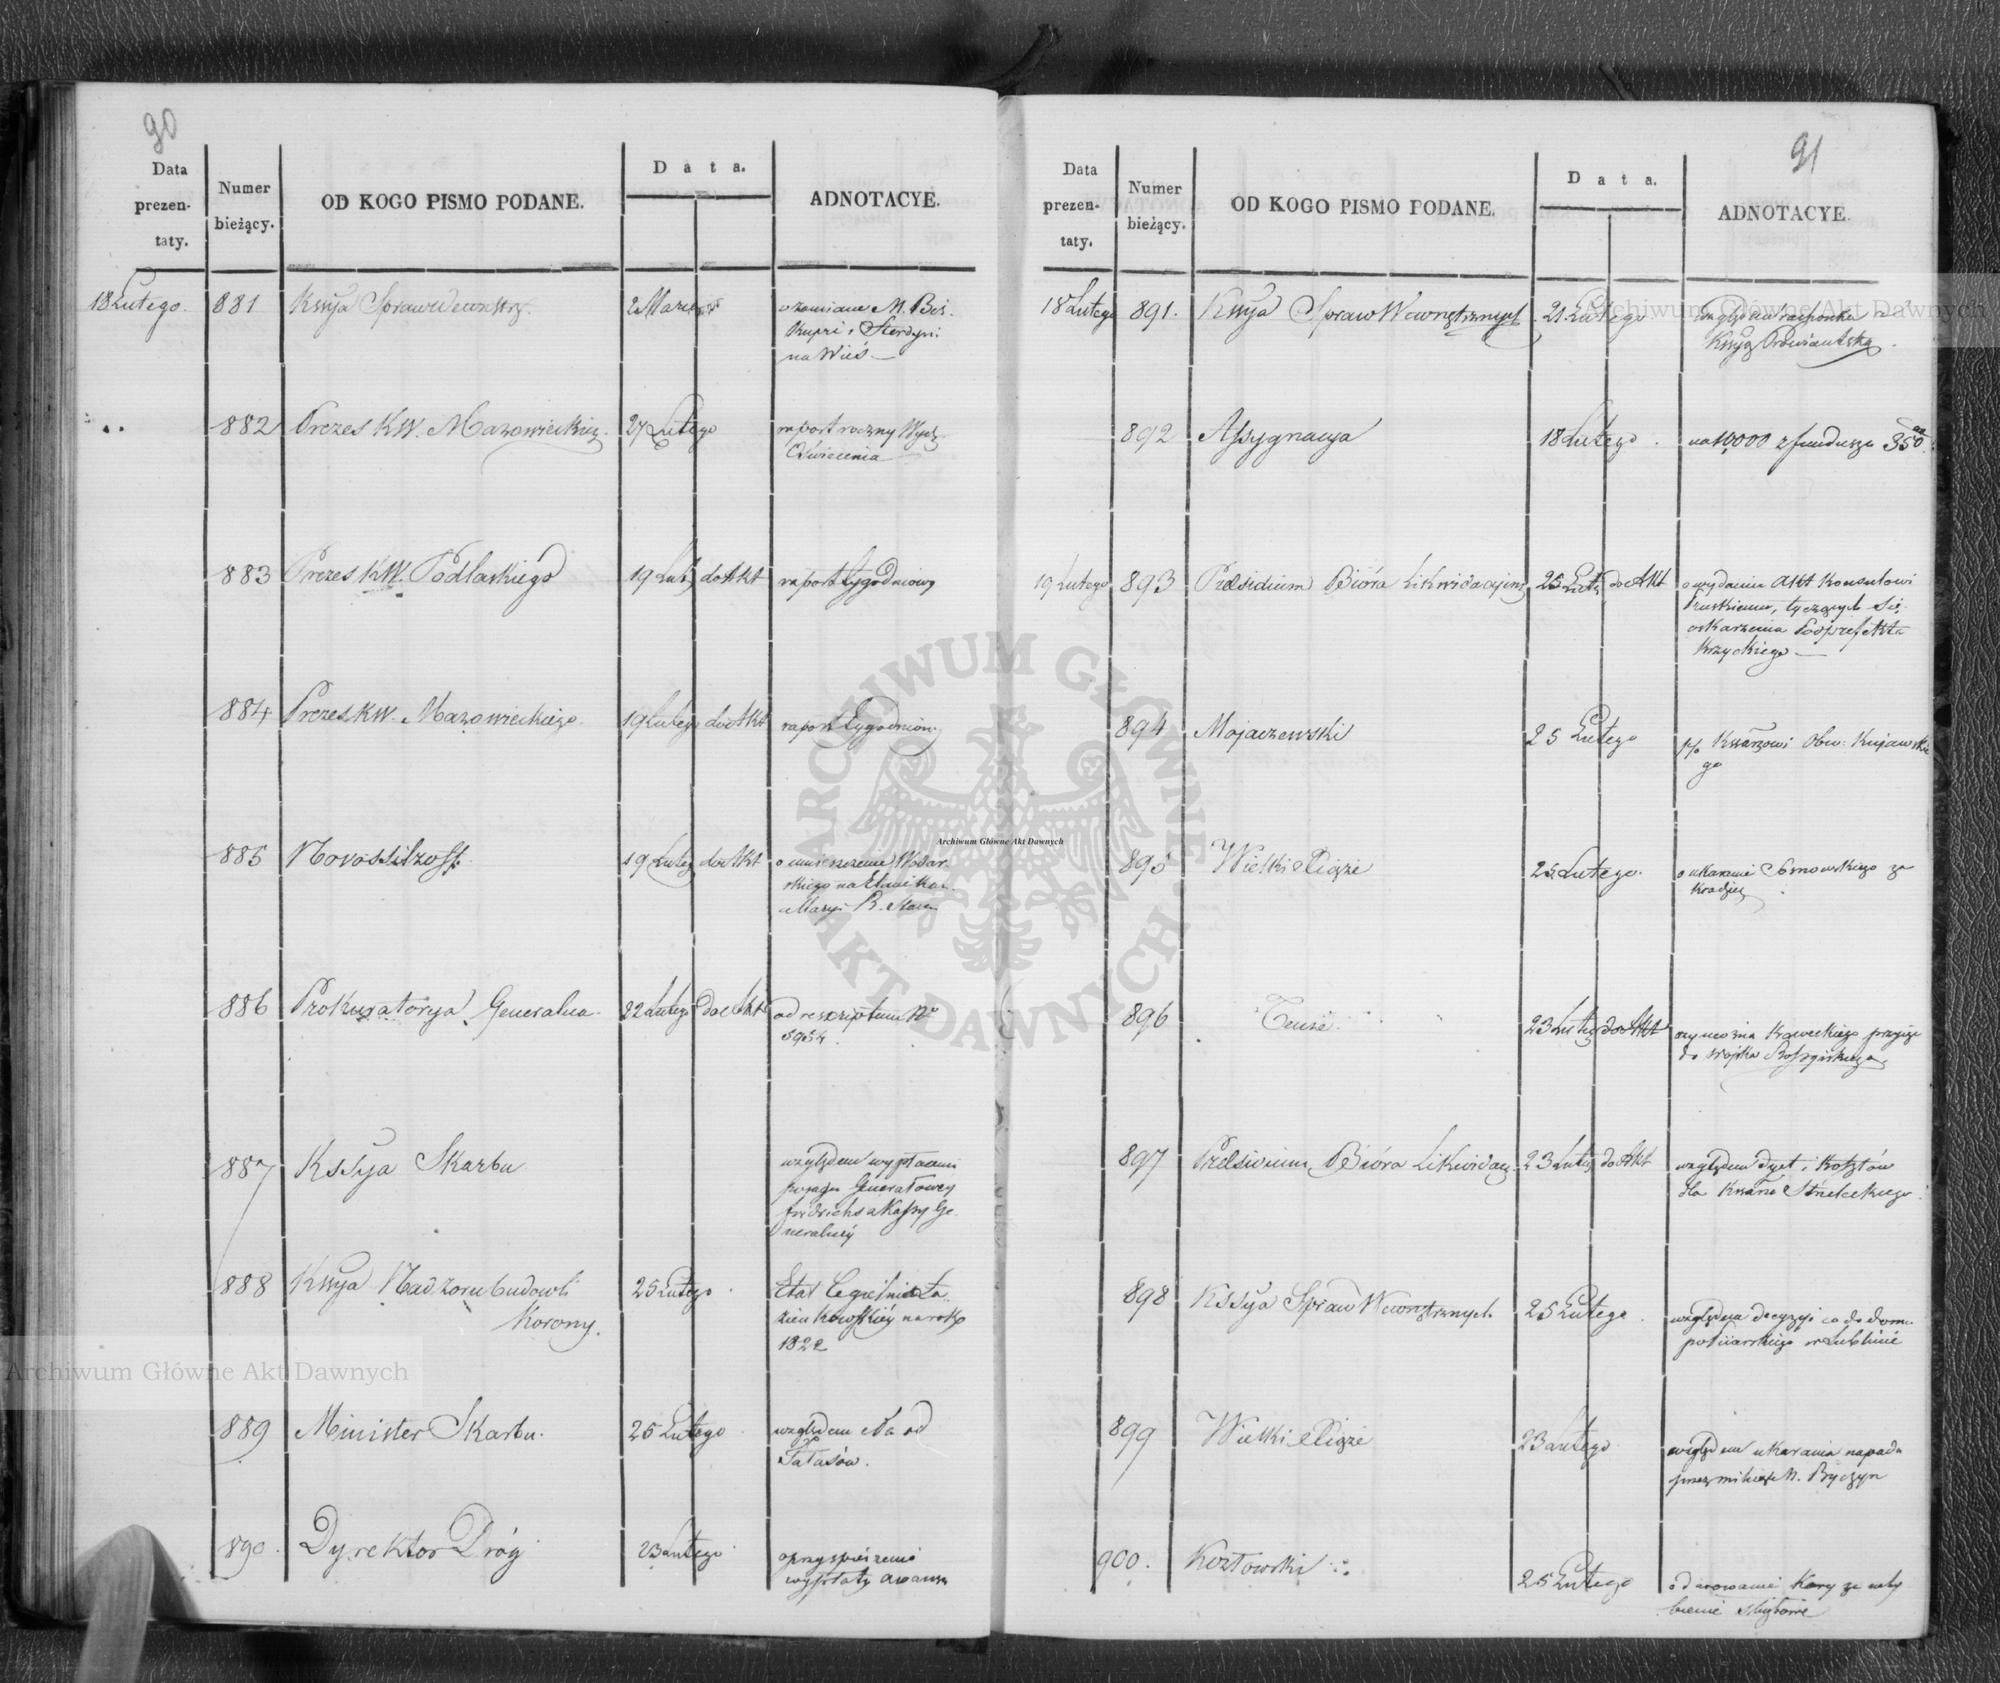 90
Data prezen- taty.
Numer bieżący.
OD KOGO PISMO PODANE.
Data.
ADNOTACYE.
18 Lutego. 881 Kssya Spraw Wewnstrz. 2 Marca o zamianie M. Bis-
kupri i Sterdyni
na Wieś
882 Prezes KW. Mazowieckieg. 27 Lutego raport roczny Wydz.
Oświecenia
883 Prezes KW. Podlaskiego 19 Lut do Akt raport tygodniowy
884 Prezes KW. Mazowieckiego. 19 Lutego do Akt raport tygodniow.
885 Novossiltzoff. 19 Luteg do Akt o umieszczenie
886 Prokuratorya Generalna. 22 Lutego do Akt od reszriptum No
5954.
887 Kssya Skarbu względem wypłacenia
posagu Generałowey
fridrichs z Kassy Ge-
neralney
888 Kssya Nadzoru budowli 25 Lutego Etat Cegielni Ła-
Korony. zienkowskiey na rok
1822
889 Minister Skarbu. 25 Lutego względem Cła od
Tałasów.
890. Dyrektor Dróg 23 Lutego o przyspieszenie
wypłaty awansu
91
Data prezen- taty.
Numer bieżący.
OD KOGO PISMO PODANE.
Data.
ADNOTACYE.
18 Lutego 891. Kssya Spraw Wewnętrznych 21 Lutego względem
Kssyą Prowiantską
892 Assygnacya 18 Lutego. na 10,000 z funduszu 350
19 Lutego 893 Presidium Bióra Likwidacyjneg 25 Lut do Akt o wydanie Akt Konsulowi
Pruskiemu, tyczących się
oskarzenia Podprefekta
Krzyckiego
894 Mojaczewski 25 Lutego p/o Kssarzowi Obw. Kujawskie
go
895 Wielki Xiąże 25 Lutego. o ukaranie Somowskiego za
kradzież
896 Tenże. 23 Luteg do Akt czy można Kraweckiego przyjąć
do wojska Rossyiskiego
897 Presidium Bióra Likwidac. 23 Luteg do Akt względem dyet i kosztów
dla Kssarza Strzeleckiego
898 Kssya Spraw Wewnętrznych 25 Lutego. względem decyzyi co do domu
w Lublinie
899 Wielki Xiąże 23 Lutego względem ukarania napadu
przez
900. Kozłowski 25 Lutego o darowanie kary za uchy
bienie służbowe
Archiwum Główne Akt Dawnych
Archiwum Główne Akt Dawnych
Archiwum Główne Akt Dawnych
ARCHIWUM GŁÓWNE AKT DAWNYCH